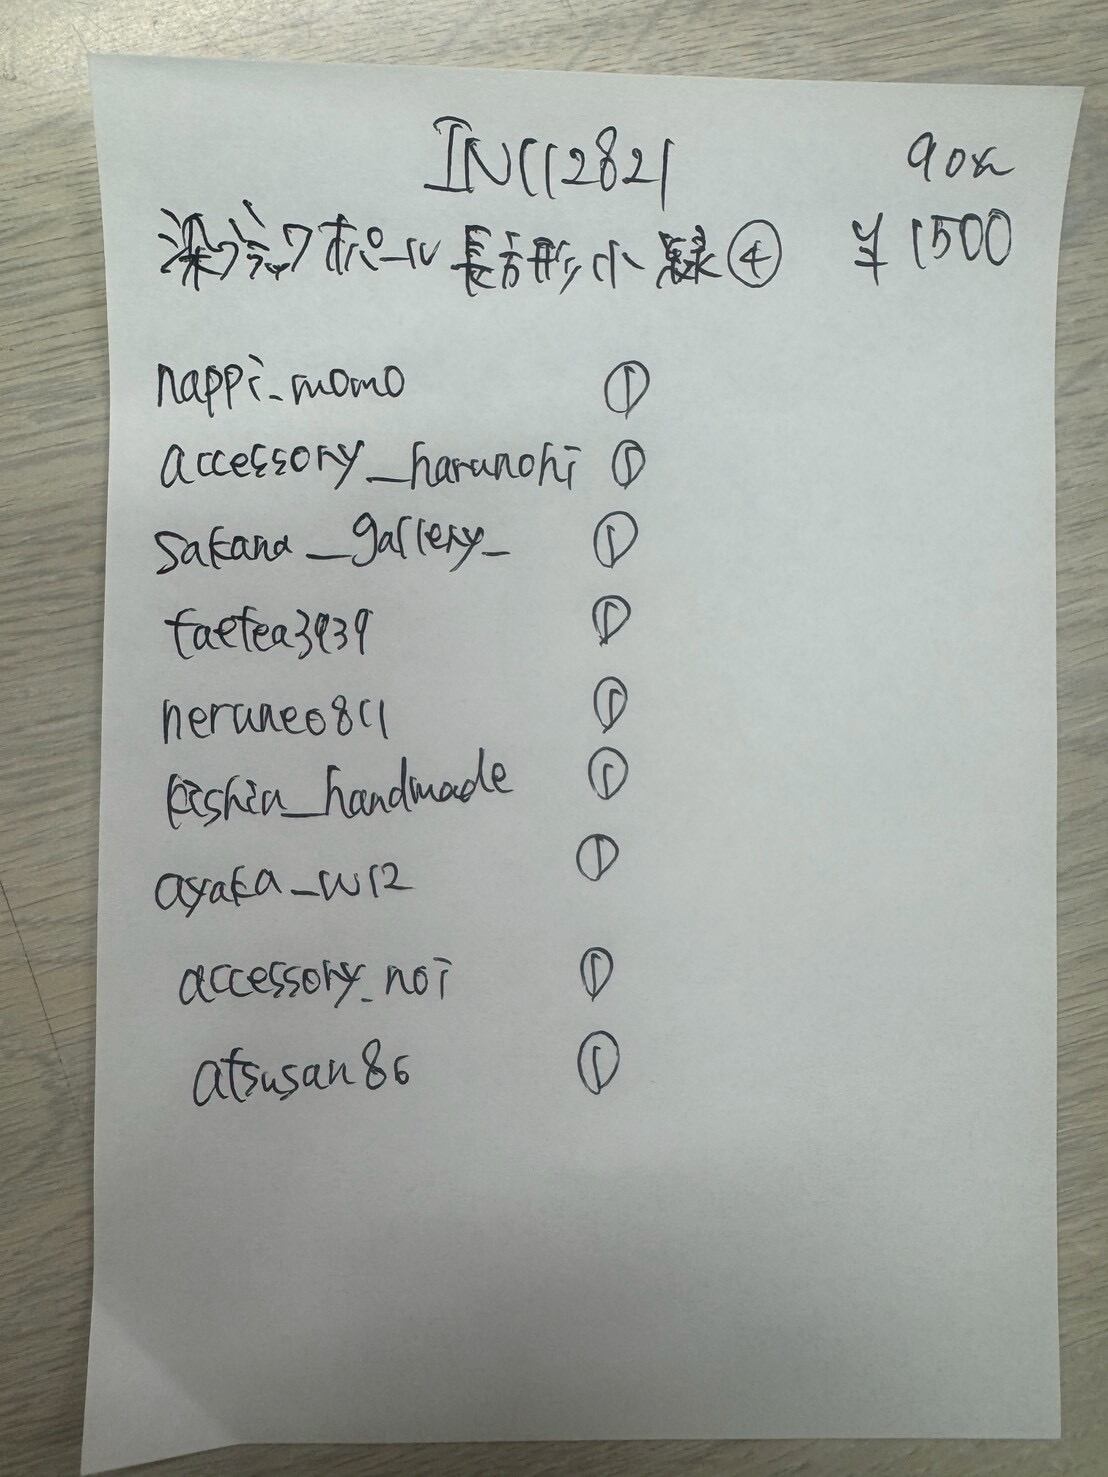 INC112821 90%
染淡水パール長方形小緑④ ¥1500
nappi_momo ①
accessory_harunohi ①
sakana_gallery_ ①
taetea3939 ①
neruneo811 ①
kishin_handmade ①
ayaka_w12 ①
accessory_noi ①
atsusan86 ①